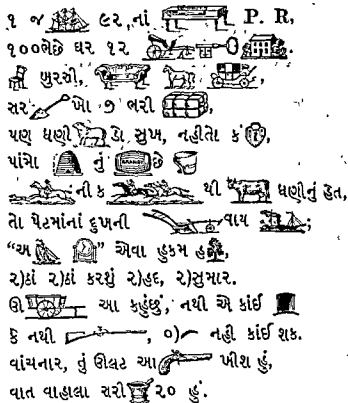 ૧ જ ૯૨, નાં P. R,
૧૦૦ભેછે ઘર ૧૨ .
ખુરશી, ,
સર ખા ૭ ભરી ,
પણ ધણી ડો સુખ, નહીતો કં ,
પાંચો નું છે
ની ક થી ધણીનું હેત,
તો પેટમાંનાં દુખની વાય ;
“અ ” એવા હુકમ હ ,
૨)ઠાં ૨)ઠાં કરશું ૨)હદ, ૨)સુમાર.
ઊ આ કહુંછું, નથી એ કાંઈ
કે નથી , ૦)~ નહી કાંઈ શક.
વાંચનાર, તું ઊલટ આ ખીશ હું,
વાત વાહાલા સરી ૨૦ હું.